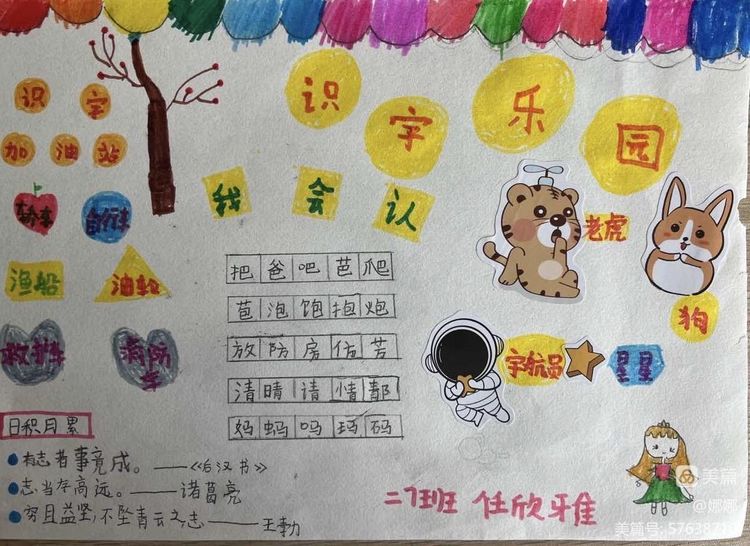 识字乐园
识字
加油站
轿车
自行车
渔船
油船
救护车
消防车
我会认
老虎
狗
宇航员
星星
把爸吧芭爬
苞泡饱抱炮
放防房仿芳
清晴请情都
妈蚂吗玛码
日积月累
有志者事竟成。——《后汉书》
志当存高远。——诸葛亮
穷且益坚,不坠青云之志——王勃
二7班 任欣雅
美篇
@娜娜